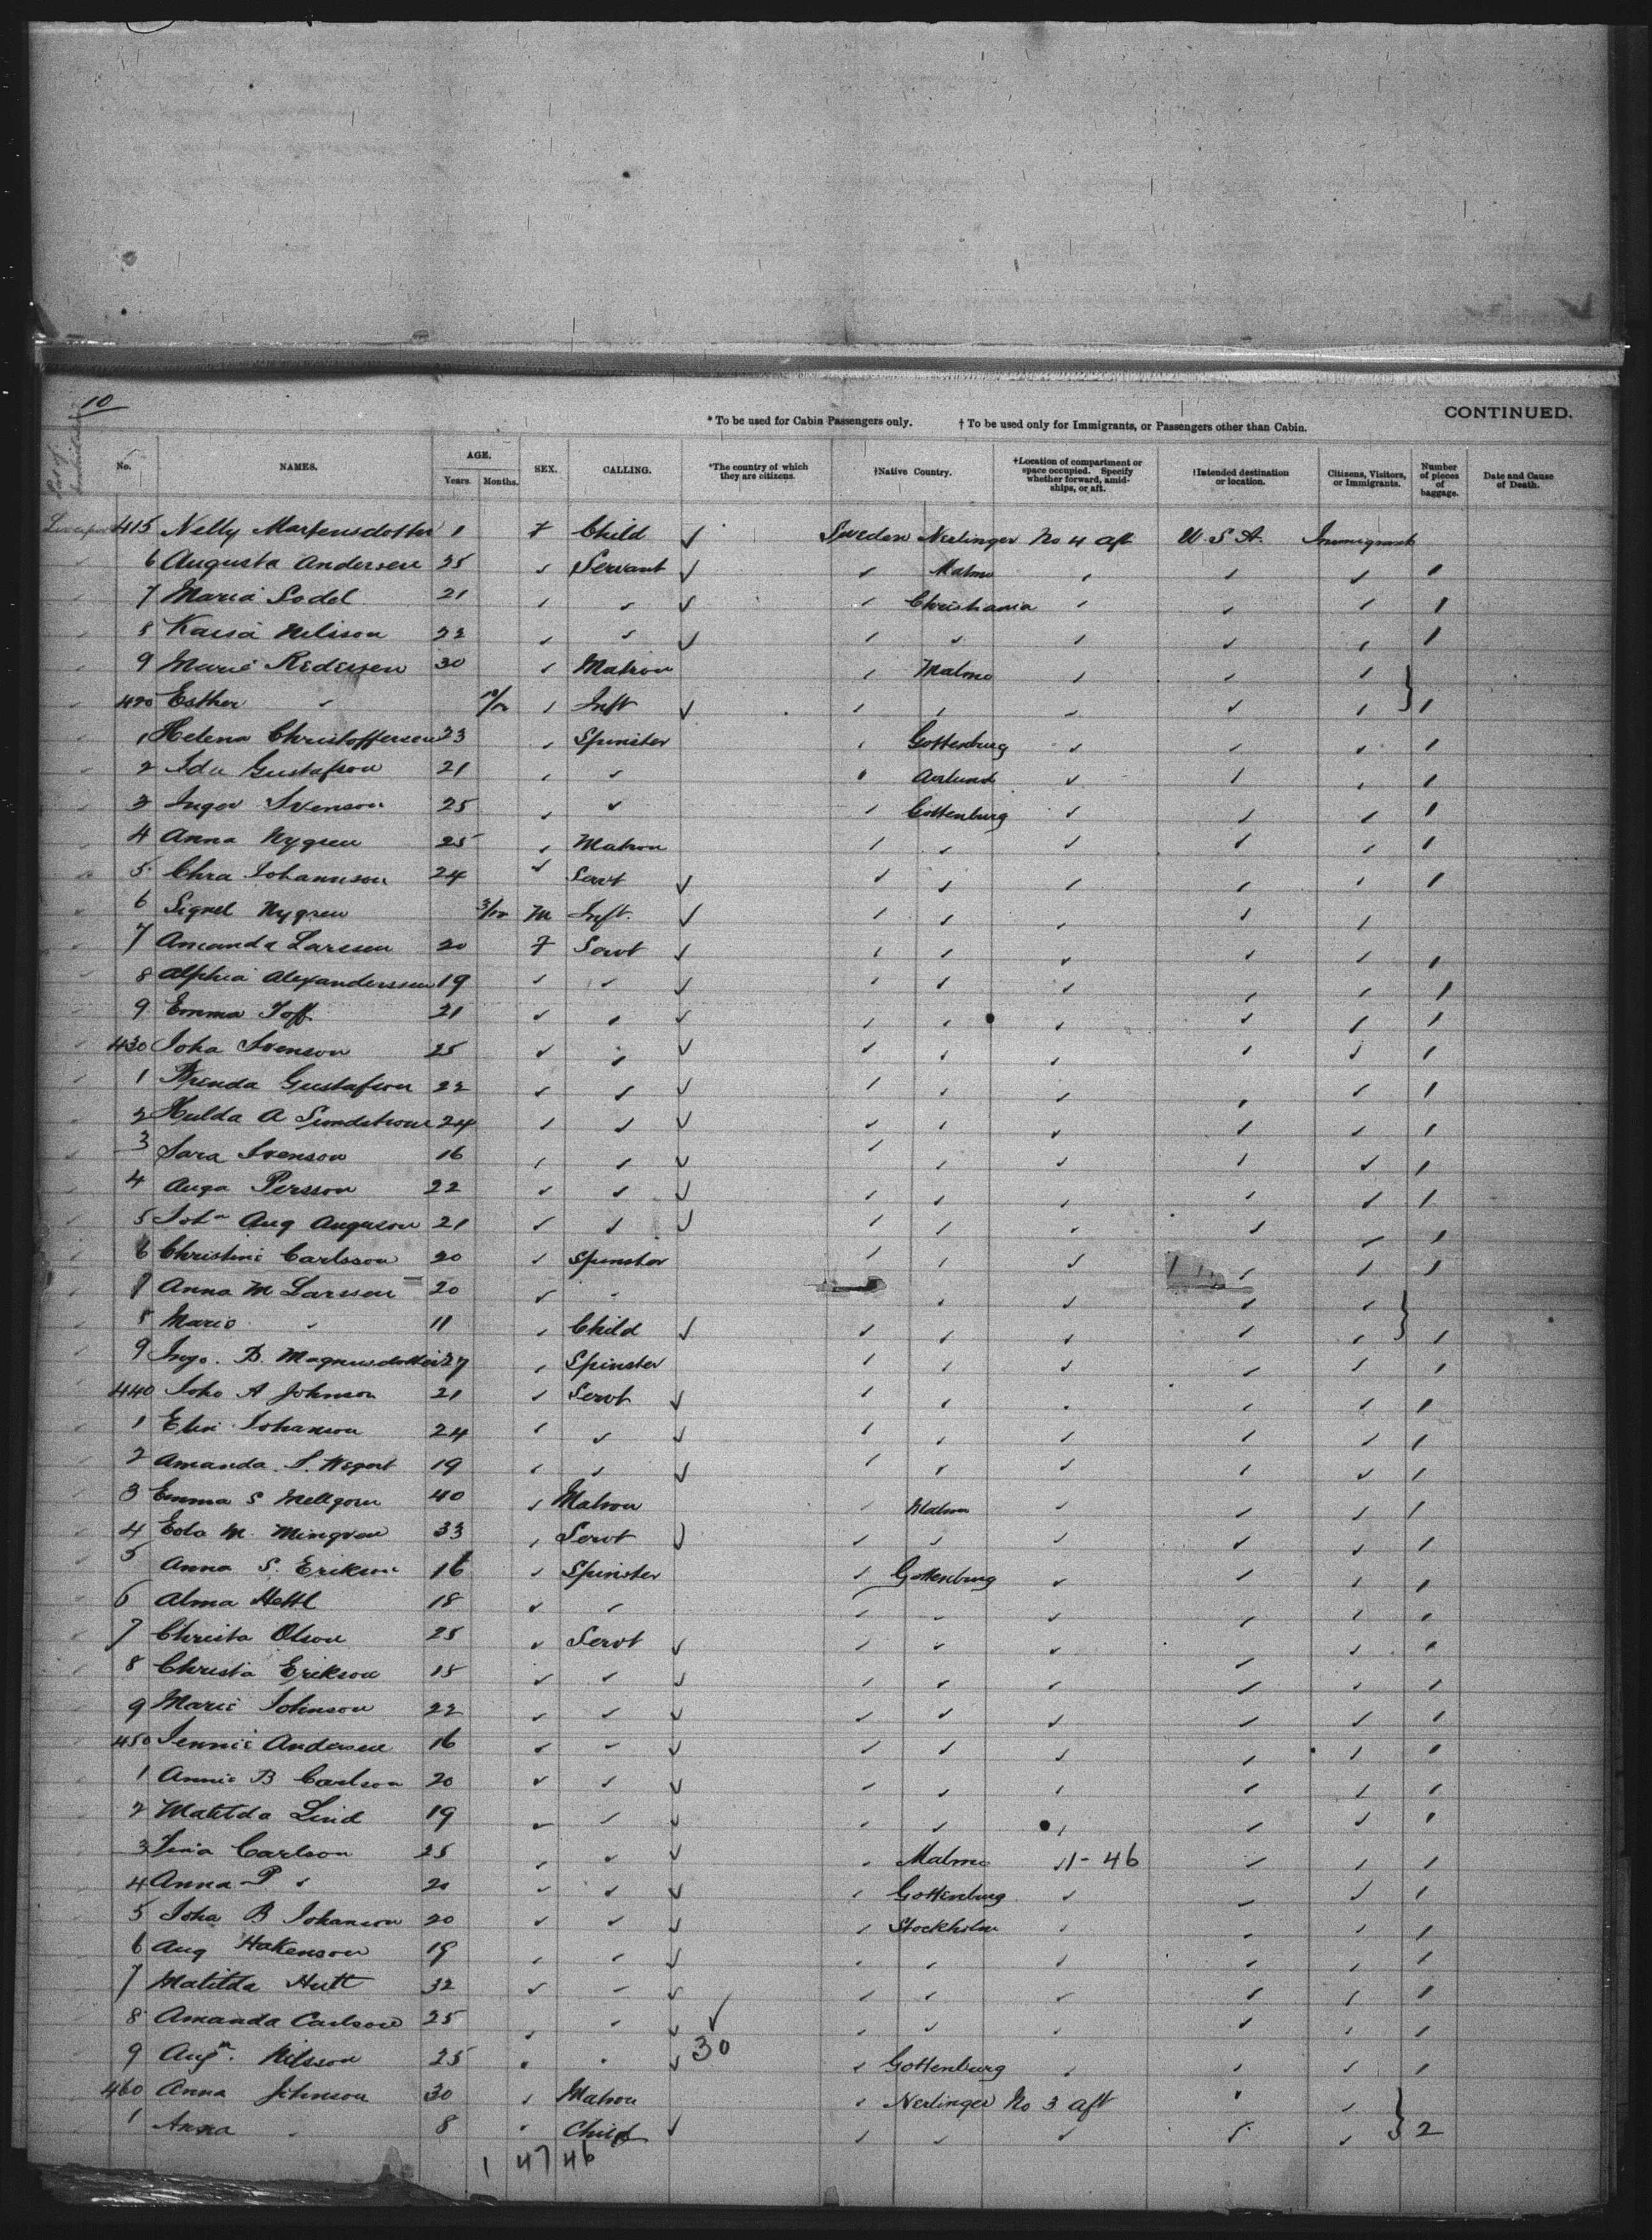 10
CONTINUED.
* To be used for Cabin Passengers only. † To be used only for Immigrants, or Passengers other than Cabin.
No. NAMES. AGE. Years. Months. SEX. CALLING. *The country of which they are citizens. †Native Country. †Location of compartment or space occupied. Specify whether forward, amidships, or aft. †Intended destination or location. Citizens, Visitors, or Immigrants. Number of pieces of baggage. Date and Cause of Death.
415 Nelly 1 F Child ✓ Sweden No 4 aft U.S.A. Immigrant
6 Augusta Andersen 25 ✓ Servant ✓ ✓ Malmo ✓ ✓ ✓ 1
7 Maria Sodel 21 ✓ ✓ ✓ ✓ Christiania ✓ ✓ ✓ 1
8 Kaisa Nelison 22 ✓ ✓ ✓ ✓ ✓ ✓ ✓ ✓ 1
9 Marie 30 ✓ Matron ✓ Malmo ✓ ✓ ✓
420 Esther " 10/12 ✓ Inft ✓ ✓ ✓ ✓ ✓ ✓ } 1
1 Helena Christofferson 23 ✓ Spinster ✓ Gottenburg ✓ ✓ ✓ 1
2 Ida Gustafson 21 ✓ ✓ ✓ ✓ ✓ ✓ 1
3 Inger Svenson 25 ✓ ✓ ✓ Gottenburg ✓ ✓ ✓ 1
4 Anna Nygren 25 ✓ Matron ✓ ✓ ✓ ✓ ✓ 1
5 Chra Johannson 24 ✓ Servt ✓ ✓ ✓ ✓ ✓ ✓ 1
6 Signel Nygren 3/12 M Inft. ✓ ✓ ✓ ✓ ✓ ✓
7 Amanda Larssen 20 F Servt ✓ ✓ ✓ ✓ ✓ ✓ 1
8 Alphia Alexanderssen 19 ✓ ✓ ✓ ✓ ✓ ✓ ✓ ✓ 1
9 Emma Toff 21 ✓ ✓ ✓ ✓ ✓ ✓ ✓ ✓ 1
430 Joha Svenson 25 ✓ ✓ ✓ ✓ ✓ ✓ ✓ ✓ 1
1 Gustafson 22 ✓ ✓ ✓ ✓ ✓ ✓ ✓ ✓ 1
2 Hulda A Sundstrom 24 ✓ ✓ ✓ ✓ ✓ ✓ ✓ ✓ 1
3 Sara Svenson 16 ✓ ✓ ✓ ✓ ✓ ✓ ✓ ✓ 1
4 Auga Persson 22 ✓ ✓ ✓ ✓ ✓ ✓ ✓ ✓ 1
5 John Aug Auguson 21 ✓ ✓ ✓ ✓ ✓ ✓ ✓ ✓ 1
6 Christine Carlsson 20 ✓ Spinster ✓ ✓ ✓ ✓ ✓ 1
7 Anna M Larssen 20 ✓ " ✓ ✓ ✓ ✓
8 Marie " 11 ✓ Child ✓ ✓ ✓ ✓ ✓ ✓ } 1
9 Inga. B. Magnusdotter 27 ✓ Spinster ✓ ✓ ✓ ✓ ✓ 1
440 Joho A Johnson 21 ✓ Servt ✓ ✓ ✓ ✓ ✓ ✓ 1
1 Elin Johanson 24 ✓ ✓ ✓ ✓ ✓ ✓ ✓ ✓ 1
2 Amanda S. 19 ✓ ✓ ✓ ✓ ✓ ✓ ✓ ✓ 1
3 Emma S 40 ✓ Matron ✓ Malmo ✓ ✓ ✓ 1
4 M. 33 ✓ Servt ✓ ✓ ✓ ✓ ✓ ✓ 1
5 Anna S. Erikson 16 ✓ Spinster ✓ Gottenburg ✓ ✓ ✓ 1
6 Alma Hettl 18 ✓ ✓ ✓ ✓ ✓ ✓ ✓ 1
7 Christa Olson 25 ✓ Servt ✓ ✓ ✓ ✓ ✓ ✓ 1
8 Christa Erikson 18 ✓ ✓ ✓ ✓ ✓ ✓ ✓ ✓ 1
9 Marie Johnson 22 ✓ ✓ ✓ ✓ ✓ ✓ ✓ ✓ 1
450 Jennie Andersen 16 ✓ ✓ ✓ ✓ ✓ ✓ ✓ ✓ 1
1 Annie B Carlson 20 ✓ ✓ ✓ ✓ ✓ ✓ ✓ ✓ 1
2 Matilda Lind 19 ✓ ✓ ✓ ✓ ✓ ✓ ✓ ✓ 1
3 Carlson 25 ✓ ✓ ✓ ✓ Malmo 11-46 ✓ ✓ 1
4 Anna P " 20 ✓ ✓ ✓ ✓ Gottenburg ✓ ✓ ✓ 1
5 Joha B Johanson 20 ✓ ✓ ✓ ✓ Stockholm ✓ ✓ ✓ 1
6 Aug Hakenson 19 ✓ ✓ ✓ ✓ ✓ ✓ ✓ ✓ 1
7 Matilda Hutt 32 ✓ ✓ ✓ ✓ ✓ ✓ ✓ ✓ 1
8 Amanda Carlson 25 ✓ ✓ ✓ ✓ ✓ ✓ ✓ ✓ ✓ 1
9 Auga. Nilsson 25 ✓ ✓ ✓ 30 ✓ Gottenburg ✓ ✓ ✓ 1
460 Anna Johnson 30 ✓ Matron ✓ No 3 aft ✓ ✓
1 Anna " 8 ✓ Child ✓ ✓ ✓ ✓ ✓ ✓ } 2
1 47 46